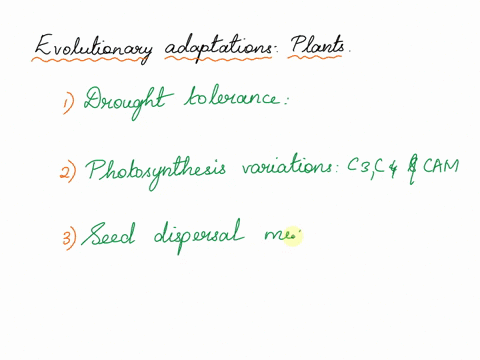 Evolutionary adaptations: Plants.
1) Drought tolerance:
2) Photosynthesis variations: C3, C4 & CAM
3) Seed dispersal me